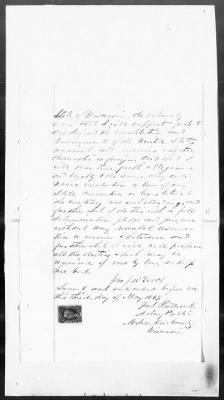 State of Wisconsin, do solemnly
swear that I will support, protect
and defend the Constitution and
Government of the United States
against all enemies, whether
domestic or foreign, and that I
will bear true faith, allegiance
and loyalty to the same, any ordi-
nance, resolution or law of any
State, Convention or Legislature to
the contrary notwithstanding, and
further that I do this with a full
determination, pledge and purpose
without any mental reservation
or evasion whatsoever, and
further that I will well perform
all the duties which may be
required of me by law so help
me God.
Sworn to and subscribed before me
this third day of May 1867
Notary Public
Milwaukee County
Wisconsin